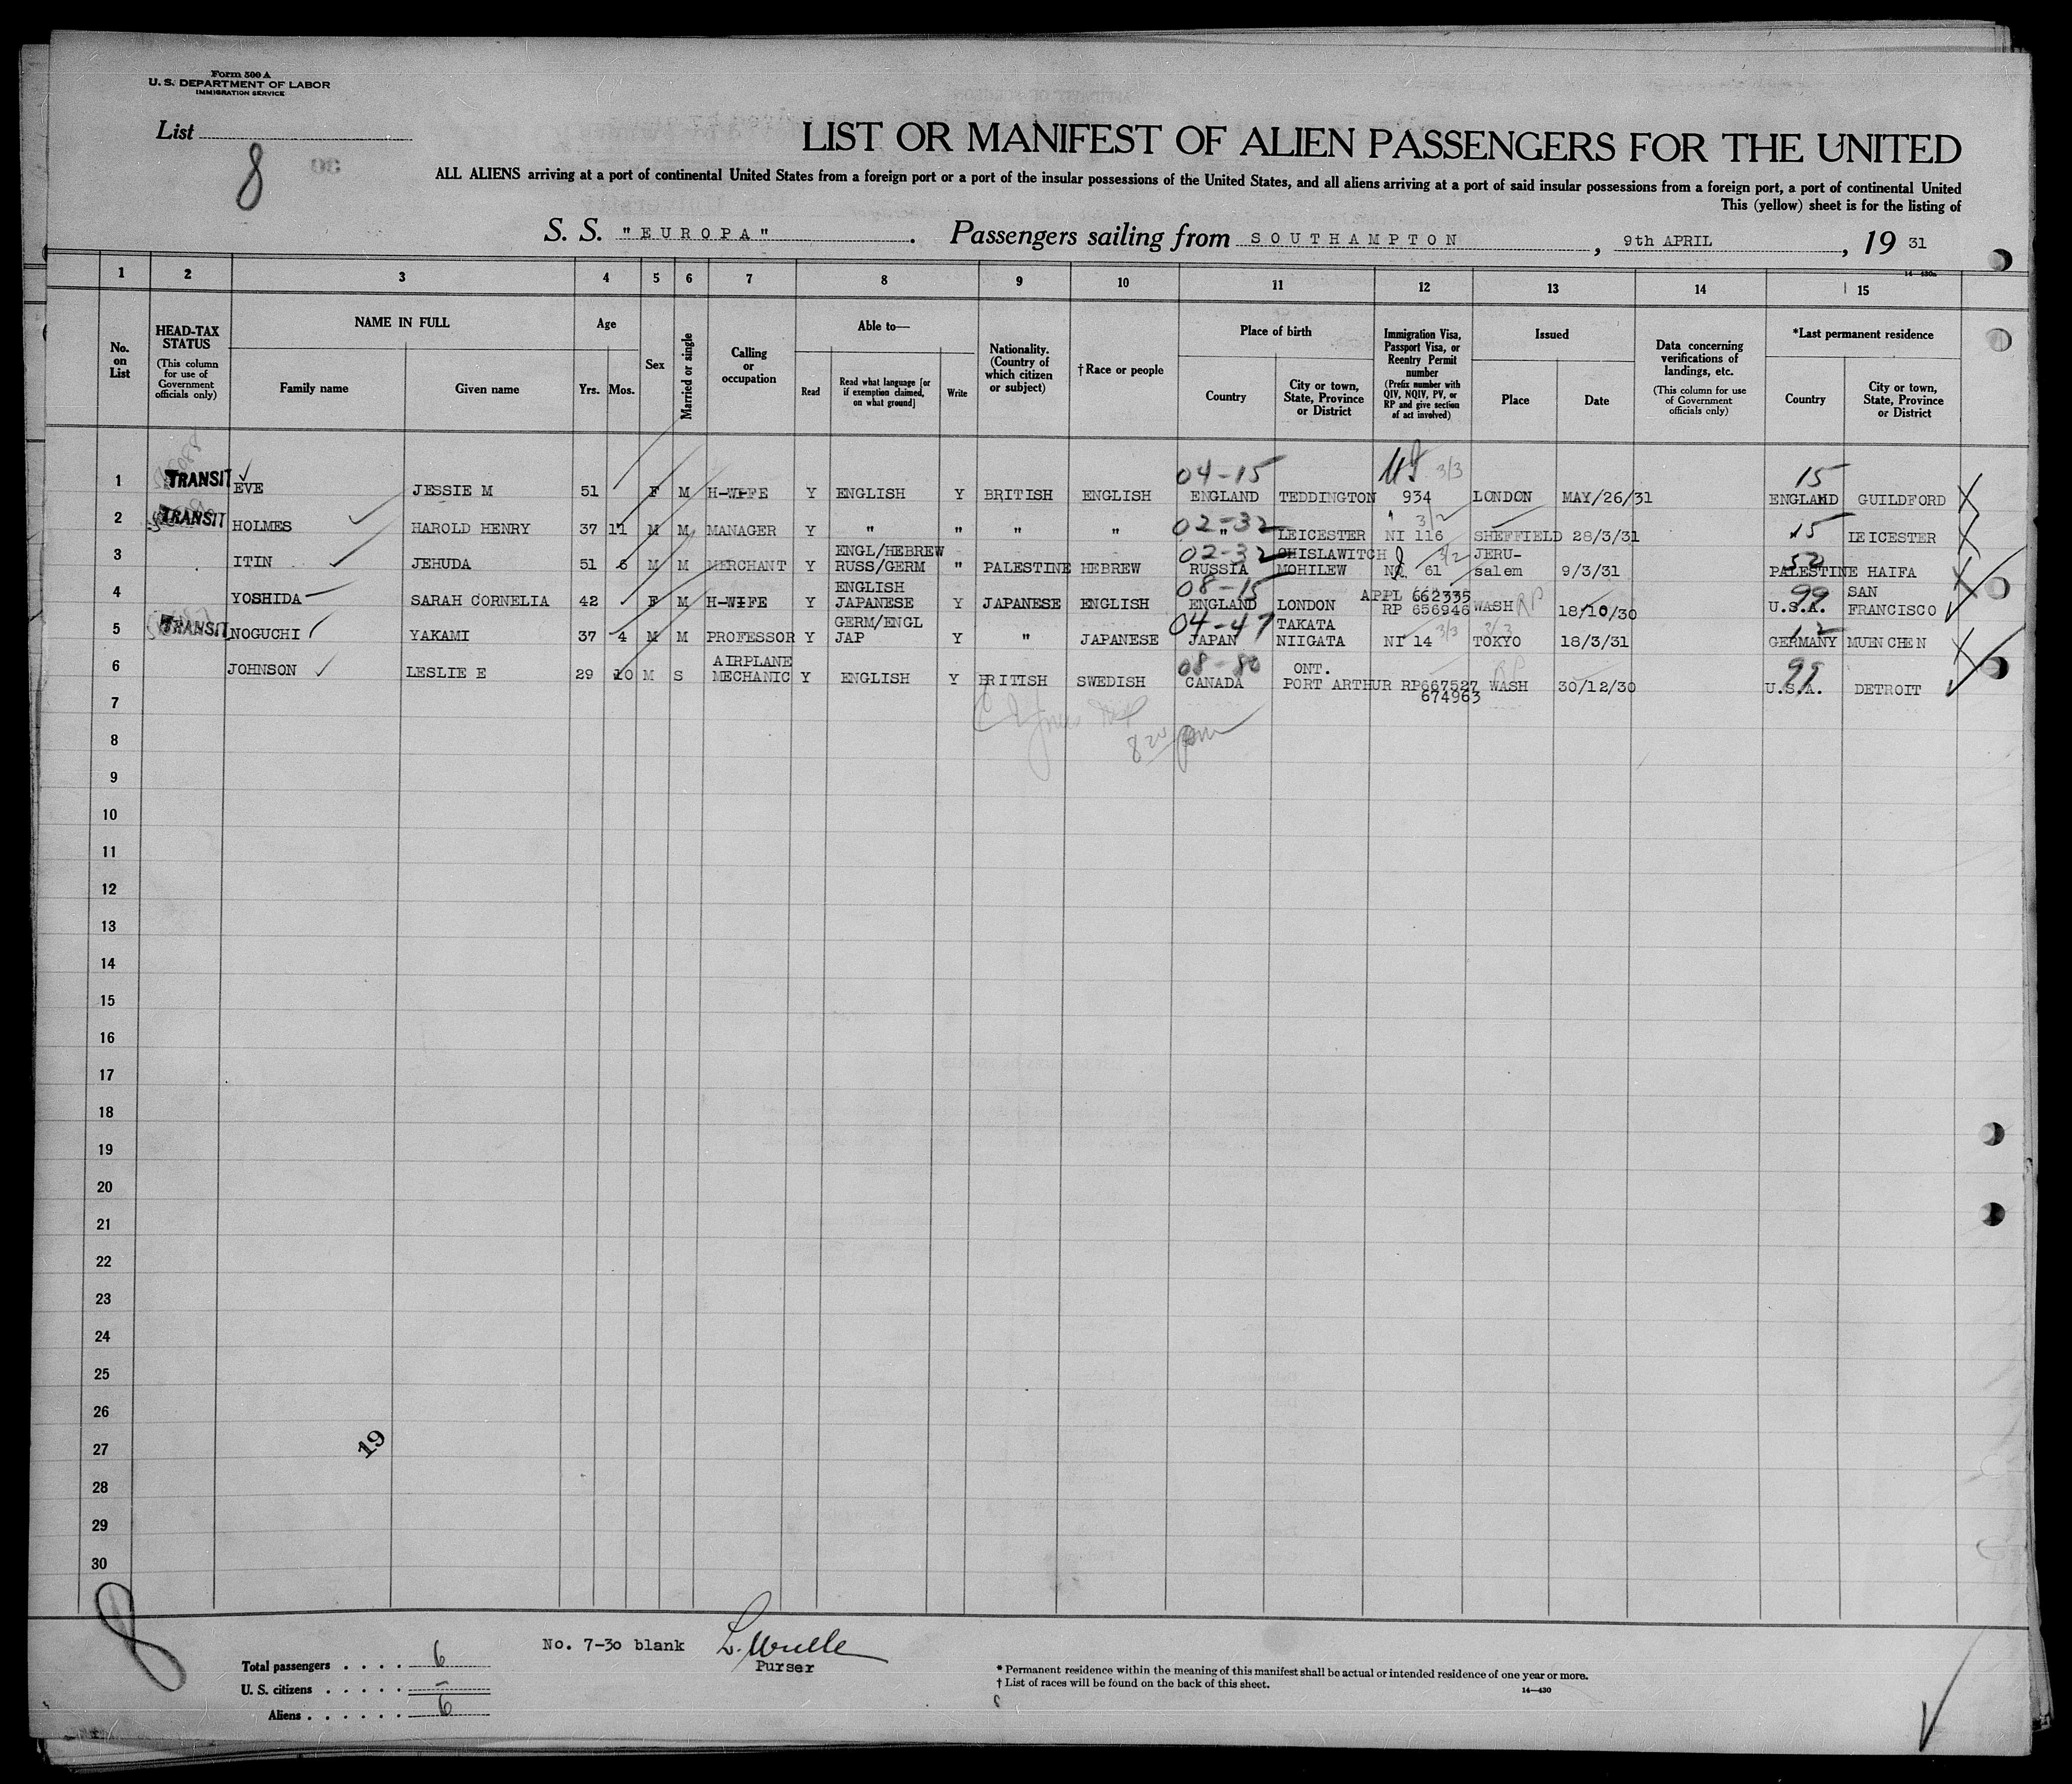 Form 500 A
U. S. DEPARTMENT OF LABOR
IMMIGRATION SERVICE
List
8
LIST OR MANIFEST OF ALIEN PASSENGERS FOR THE UNITED
ALL ALIENS arriving at a port of continental United States from a foreign port or a port of the insular possessions of the United States, and all aliens arriving at a port of said insular possessions from a foreign port, a port of continental United
This (yellow) sheet is for the listing of
S. S. "EUROPA". Passengers sailing from SOUTHAMPTON, 9th APRIL, 19 31
14—430a
1 2 3 4 5 6 7 8 9 10 11 12 13 14 15
No. on List
HEAD-TAX STATUS (This column for use of Government officials only)
NAME IN FULL
Family name Given name
Age
Yrs. Mos.
Sex
Married or single
Calling or occupation
Able to—
Read
Read what language [or if exemption claimed, on what ground]
Write
Nationality. (Country of which citizen or subject)
† Race or people
Place of birth
Country
City or town, State, Province or District
Immigration Visa, Passport Visa, or Reentry Permit number (Prefix number with QIV, NQIV, PV, or RP and give section of act involved)
Issued
Place Date
Data concerning verifications of landings, etc. (This column for use of Government officials only)
*Last permanent residence
Country
City or town, State, Province or District
04-15 3/3 15
1 TRANSIT EVE JESSIE M 51 F M H-WIFE Y ENGLISH Y BRITISH ENGLISH ENGLAND TEDDINGTON 934 LONDON MAY/26/31 ENGLAND GUILDFORD
02-32 3/2 15
2 TRANSIT HOLMES HAROLD HENRY 37 11 M M MANAGER Y " " " " " LEICESTER NI 116 SHEFFIELD 28/3/31 LEICESTER
ENGL/HEBREW 02-32 CHISLAWITCH 3/2 JERU- 52
3 ITIN JEHUDA 51 6 M M MERCHANT Y RUSS/GERM " PALESTINE HEBREW RUSSIA MOHILEW 61 salem 9/3/31 PALESTINE HAIFA
ENGLISH 08-15 APPL 662335 RP 99 SAN
4 YOSHIDA SARAH CORNELIA 42 F M H-WIFE Y JAPANESE Y JAPANESE ENGLISH ENGLAND LONDON RP 656946 WASH 18/10/30 U.S.A. FRANCISCO
GERM/ENGL 04-47 TAKATA 3/3 3/3 12
5 TRANSIT NOGUCHI YAKAMI 37 4 M M PROFESSOR Y JAP Y " JAPANESE JAPAN NIIGATA NI 14 TOKYO 18/3/31 GERMANY MUENCHEN
AIRPLANE 08-80 ONT. RP 99
6 JOHNSON LESLIE E 29 10 M S MECHANIC Y ENGLISH Y BRITISH SWEDISH CANADA PORT ARTHUR RP667527 WASH 30/12/30 U.S.A. DETROIT
674963
7
8 20 pm
8
9
10
11
12
13
14
15
16
17
18
19
20
21
22
23
24
25
26
27
19
28
29
30
8
No. 7-30 blank
Purser
Total passengers . . . . 6
U. S. citizens . . . . . –
Aliens . . . . . . 6
* Permanent residence within the meaning of this manifest shall be actual or intended residence of one year or more.
† List of races will be found on the back of this sheet.
14—430